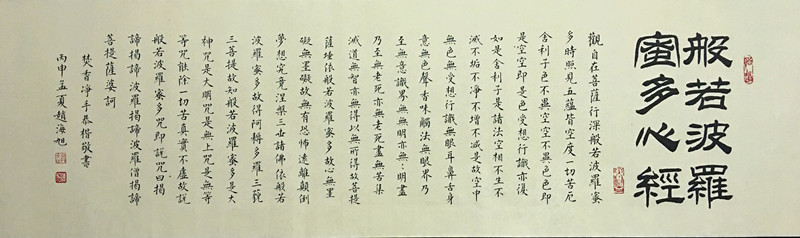 般若波羅
蜜多心經
觀自在菩薩行深般若波羅蜜
多時照見五蘊皆空度一切苦厄
舍利子色不異空空不異色色即
是空空即是色受想行識亦復
如是舍利子是諸法空相不生不
滅不垢不淨不增不減是故空中
無色無受想行識無眼耳鼻舌身
意無色聲香味觸法無眼界乃
至無意識界無無明亦無〻明盡
乃至無老死亦無老死盡無苦集
滅道無智亦無得以無所得故菩提
薩埵依般若波羅蜜多故心無罣
礙無罣礙故無有恐怖遠離顛倒
夢想究竟涅槃三世諸佛依般若
波羅蜜多故得阿耨多羅三藐
三菩提故知般若波羅蜜多是大
神咒是大明咒是無上咒是無等
等咒能除一切苦真實不虛故說
般若波羅蜜多咒即說咒曰揭
諦揭諦波羅揭諦波羅僧揭諦
菩提薩婆訶
焚香淨手恭楷敬書
丙申孟夏趙海旭